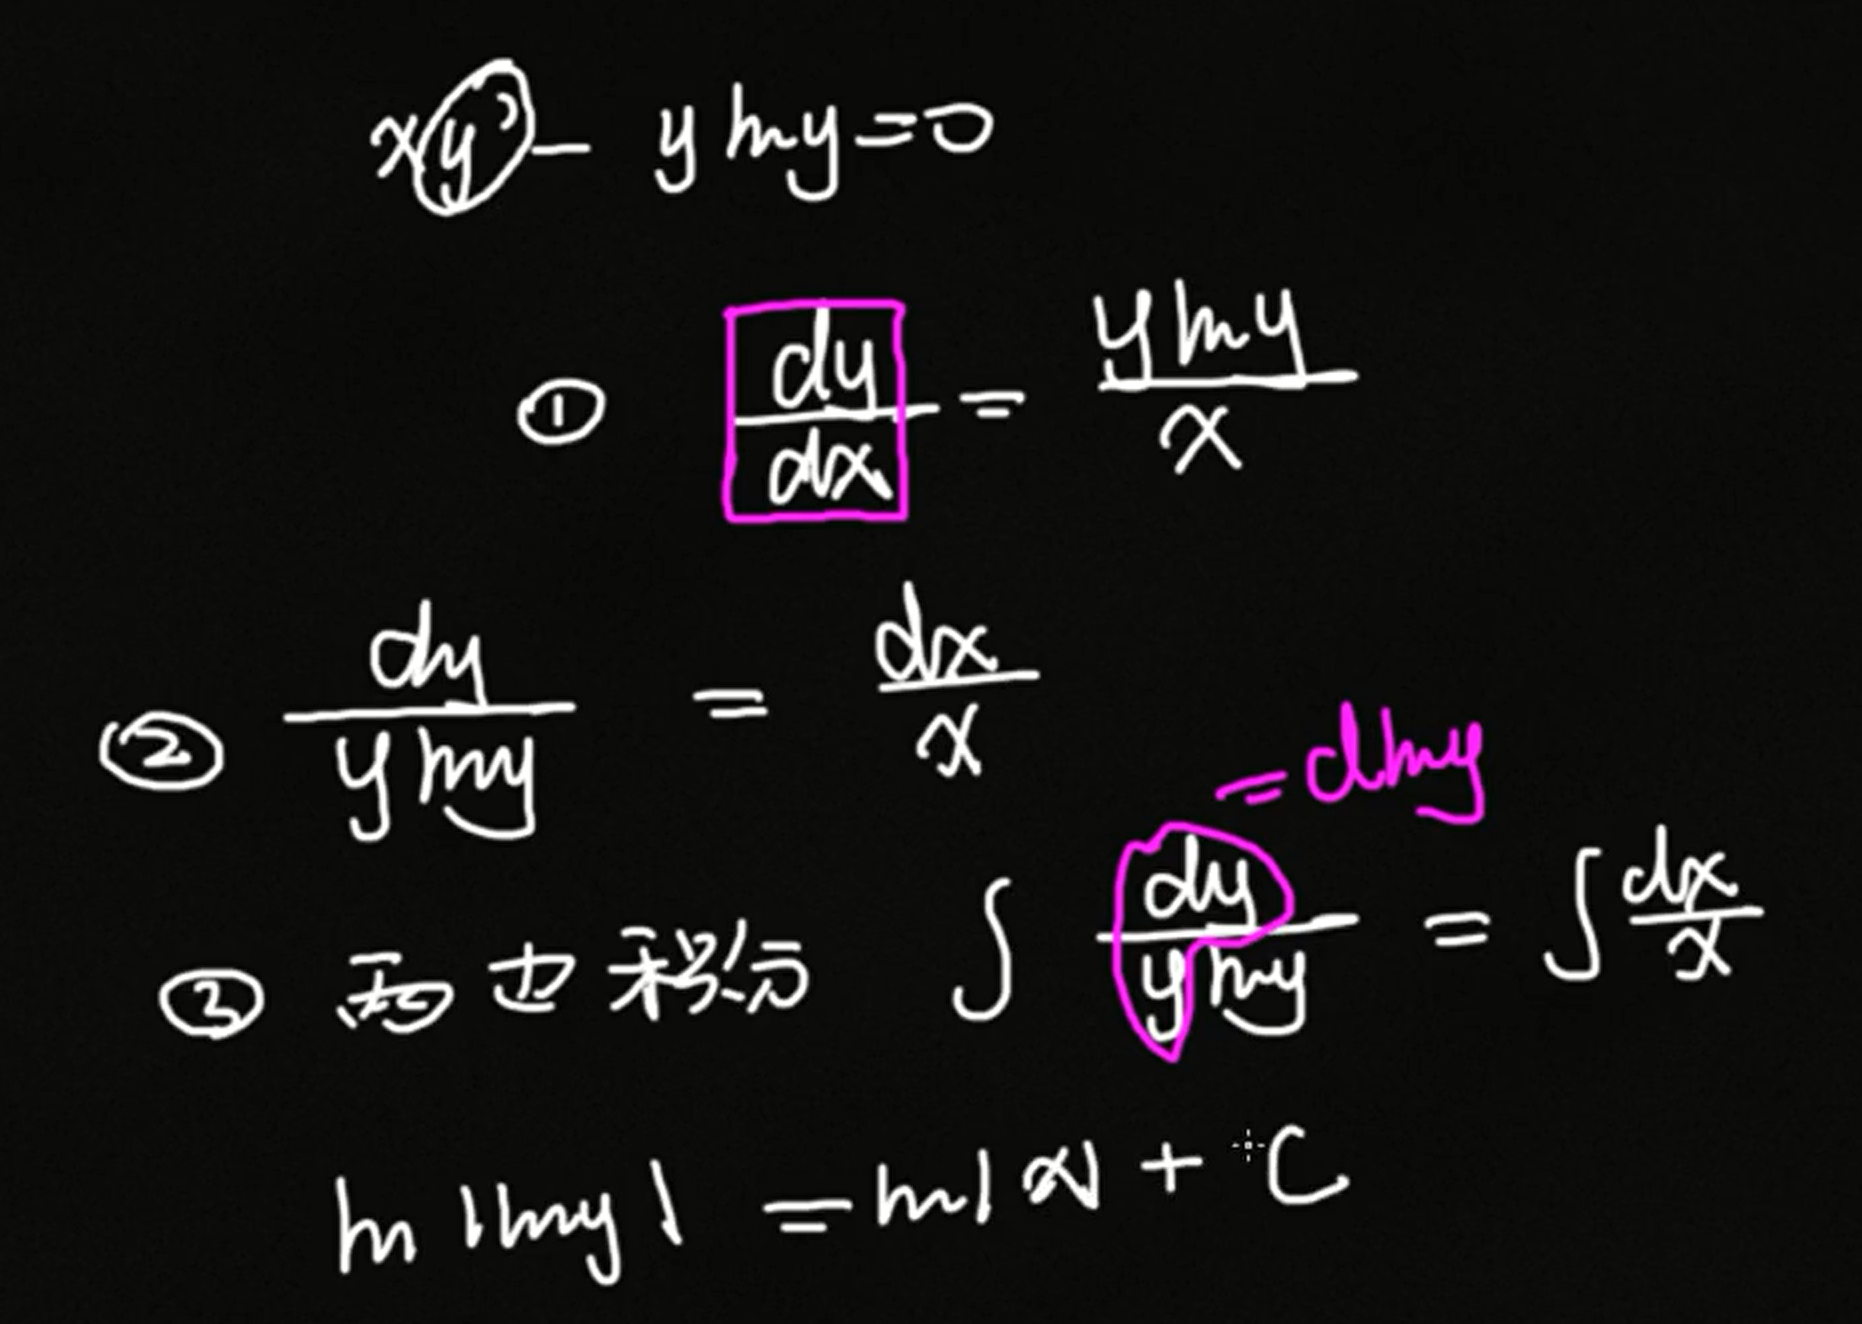 xy' - y ln y = 0
① dy/dx = y ln y / x
② dy / y ln y = dx / x
= d ln y
③ 两边积分 ∫ dy / y ln y = ∫ dx / x
ln |ln y| = ln |x| + C